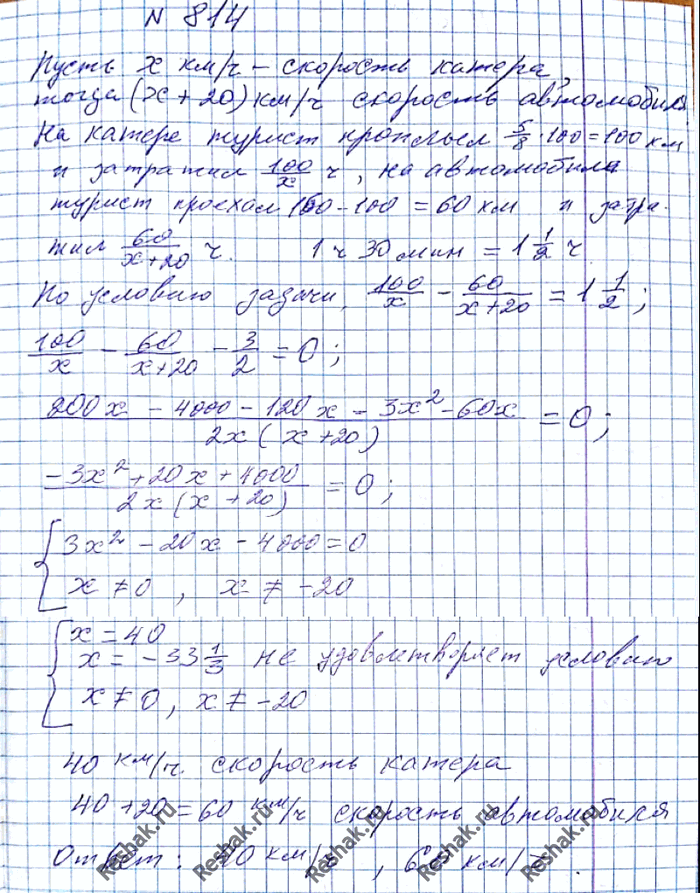 N 814
Пусть x км/ч – скорость катера,
тогда (x + 20) км/ч скорость автомобиля
На катере турист проплыл 5/8 · 100 = 100 км
и затратил 100/x ч, на автомобиле
турист проехал 160 – 100 = 60 км и затра-
тил 60/(x+20) ч. 1 ч 30 мин = 1 1/2 ч
По условию задачи, 100/x – 60/(x+20) = 1 1/2;
100/x – 60/(x+20) – 3/2 = 0;
(200x – 4000 – 120x – 3x² – 60x)/(2x(x+20)) = 0;
(–3x² + 20x + 4000)/(2x(x+20)) = 0;
{ 3x² – 20x – 4000 = 0
x ≠ 0, x ≠ –20
{ x = 40
x = –33 1/3 не удовлетворяет условию
x ≠ 0, x ≠ –20
40 км/ч скорость катера
40 + 20 = 60 км/ч скорость автомобиля
Ответ: 40 км/ч, 60 км/ч.
Reshak.ru Reshak.ru Reshak.ru Reshak.ru